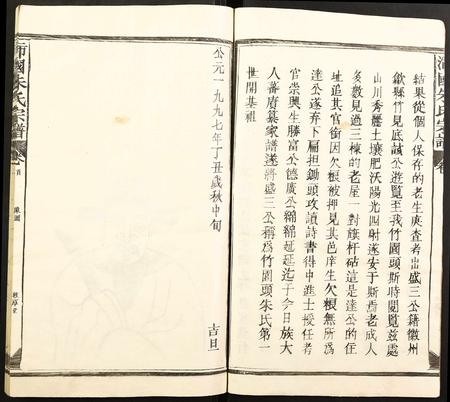 結果從個人保存的老生庚查考出盛三公籍徽州
歙縣竹見底誠公遊覽至我竹園頭斯時閱覽茲處
山川秀麗土壤肥沃陽光四射遂安于斯焉老成人
多數見過三棟的老屋一對旗杆砧這是達公的住
址追其官銜因欠根被押見其邑庠生欠根無所為
達公遂弃下扁担鋤頭攻讀詩書得中進士授任考
官崇興生勝富公德廣公綿綿延延迄于今日族大
人蕃府纂家譜遂將盛三公稱為竹園頭朱氏第一
世開基祖
公元一九九七年丁丑歲秋中旬
吉旦
沛國朱氏宗譜
卷首